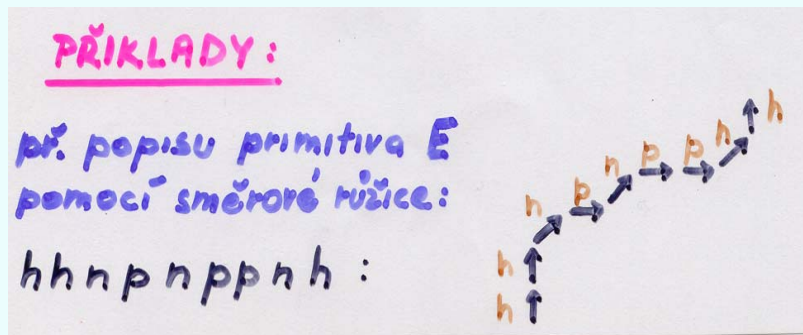 PŘIKLADY:
př. popisu primitiva E
pomocí směrové růžice:
hhnpnppnh:
h
n
p
p
n
p
n
h
h